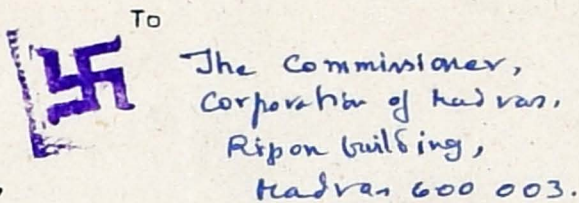 To
The Commissioner,
Corporation of Madras,
Ripon building,
Madras 600 003.